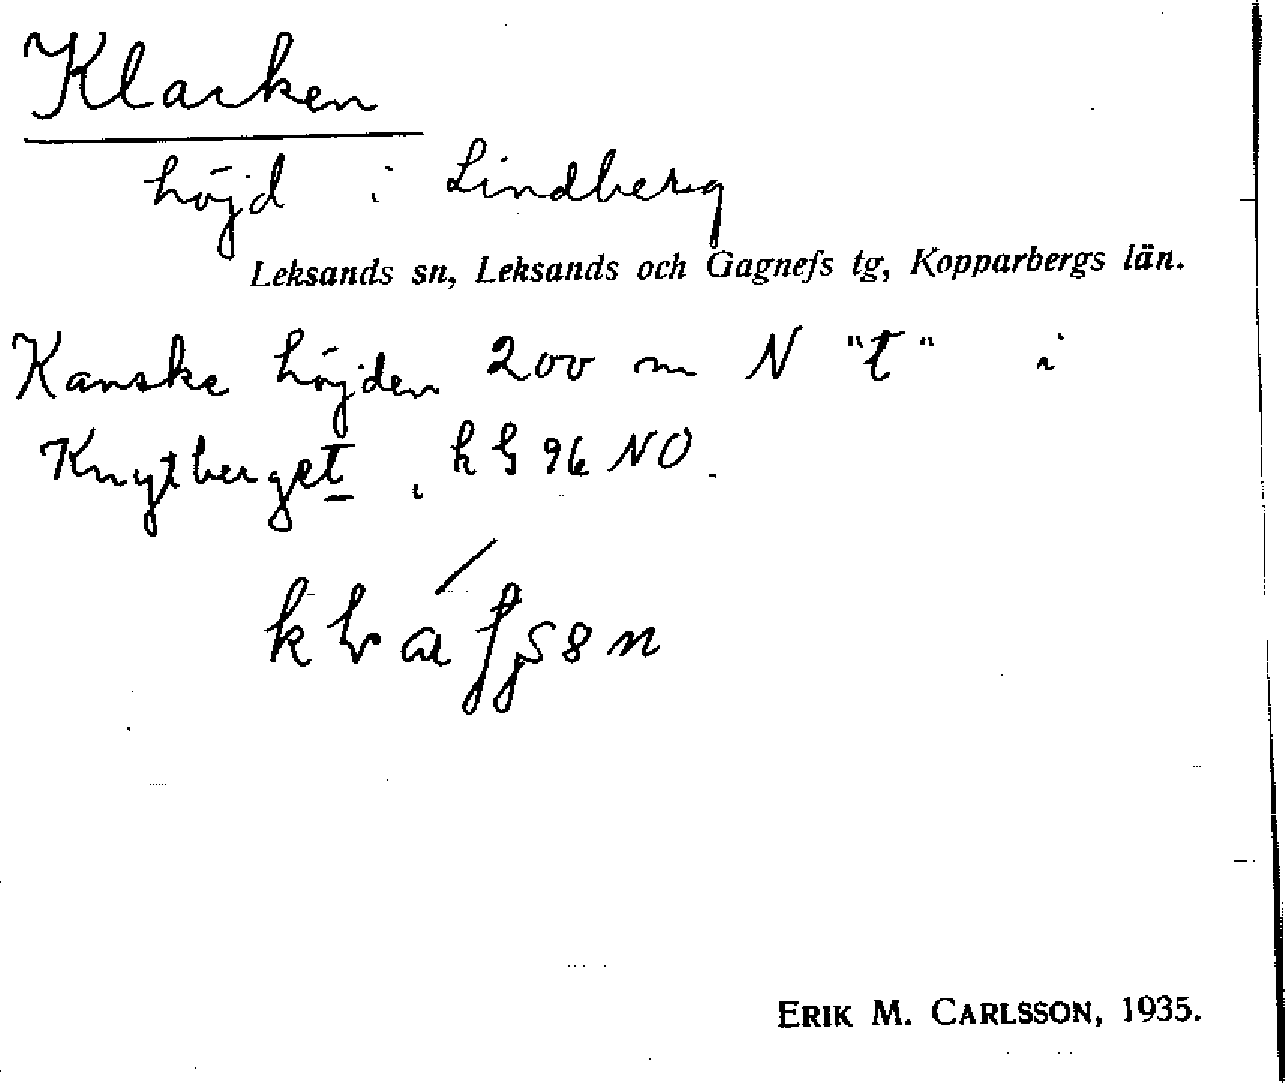 Klacken
höjd i Lindberg
Leksands sn, Leksands och Gagnefs tg, Kopparbergs län.
Kanske höjden 200 m N "t" i
Knytberget, k 96 NO.
ERIK M. CARLSSON, 1935.